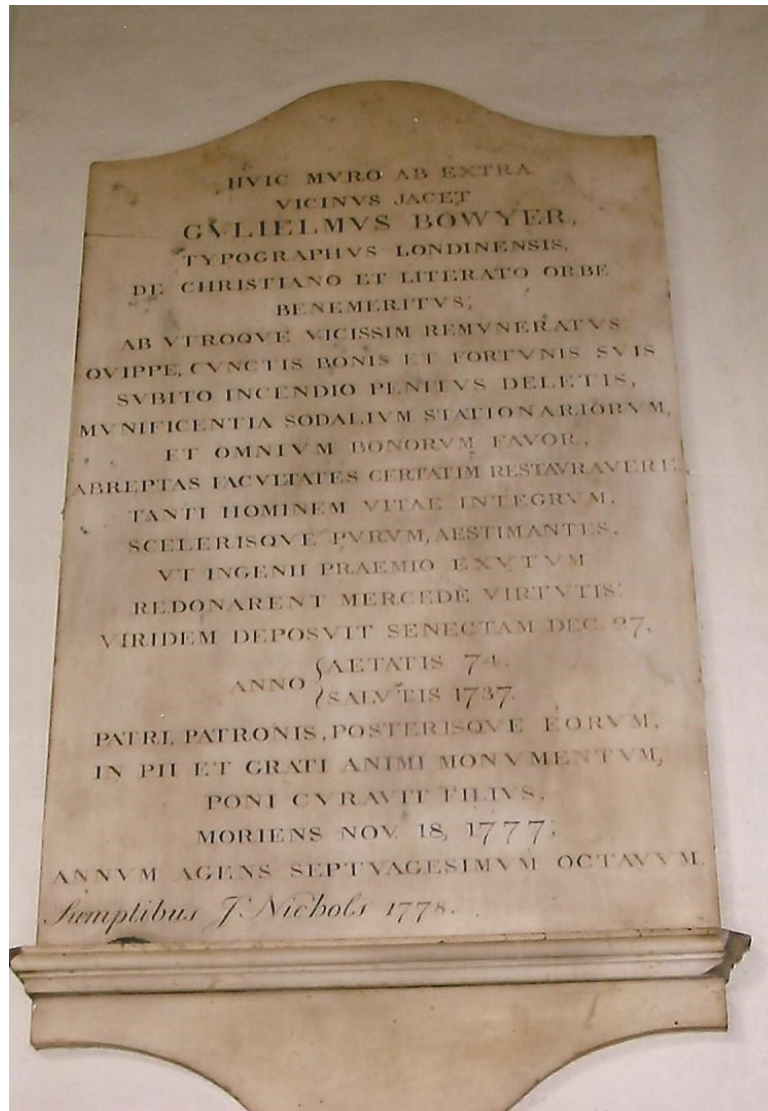 HVIC MVRO AB EXTRA
VICINVS JACET
GVLIELMVS BOWYER,
TYPOGRAPHVS LONDINENSIS,
DE CHRISTIANO ET LITERATO ORBE
BENEMERITVS;
AB VTROQVE VICISSIM REMVNERATVS
QVIPPE, CVNCTIS BONIS ET FORTVNIS SVIS
SVBITO INCENDIO PENITVS DELETIS,
MVNIFICENTIA SODALIVM STATIONARIORVM,
ET OMNIVM BONORVM FAVOR,
ABREPTAS FACVLTATES CERTATIM RESTAVRAVERE,
TANTI HOMINEM VITAE INTEGRVM,
SCELERISQVE PVRVM, AESTIMANTES,
VT INGENII PRAEMIO EXVTVM
REDONARENT MERCEDE VIRTVTIS:
VIRIDEM DEPOSVIT SENECTAM DEC. 27,
ANNO { AETATIS 74.
SALVTIS 1737.
PATRI, PATRONIS, POSTERISQVE EORVM,
IN PII ET GRATI ANIMI MONVMENTVM,
PONI CVRAVIT FILIVS,
MORIENS NOV. 18, 1777;
ANNVM AGENS SEPTVAGESIMVM OCTAVVM.
Sumptibus J. Nichols 1778.